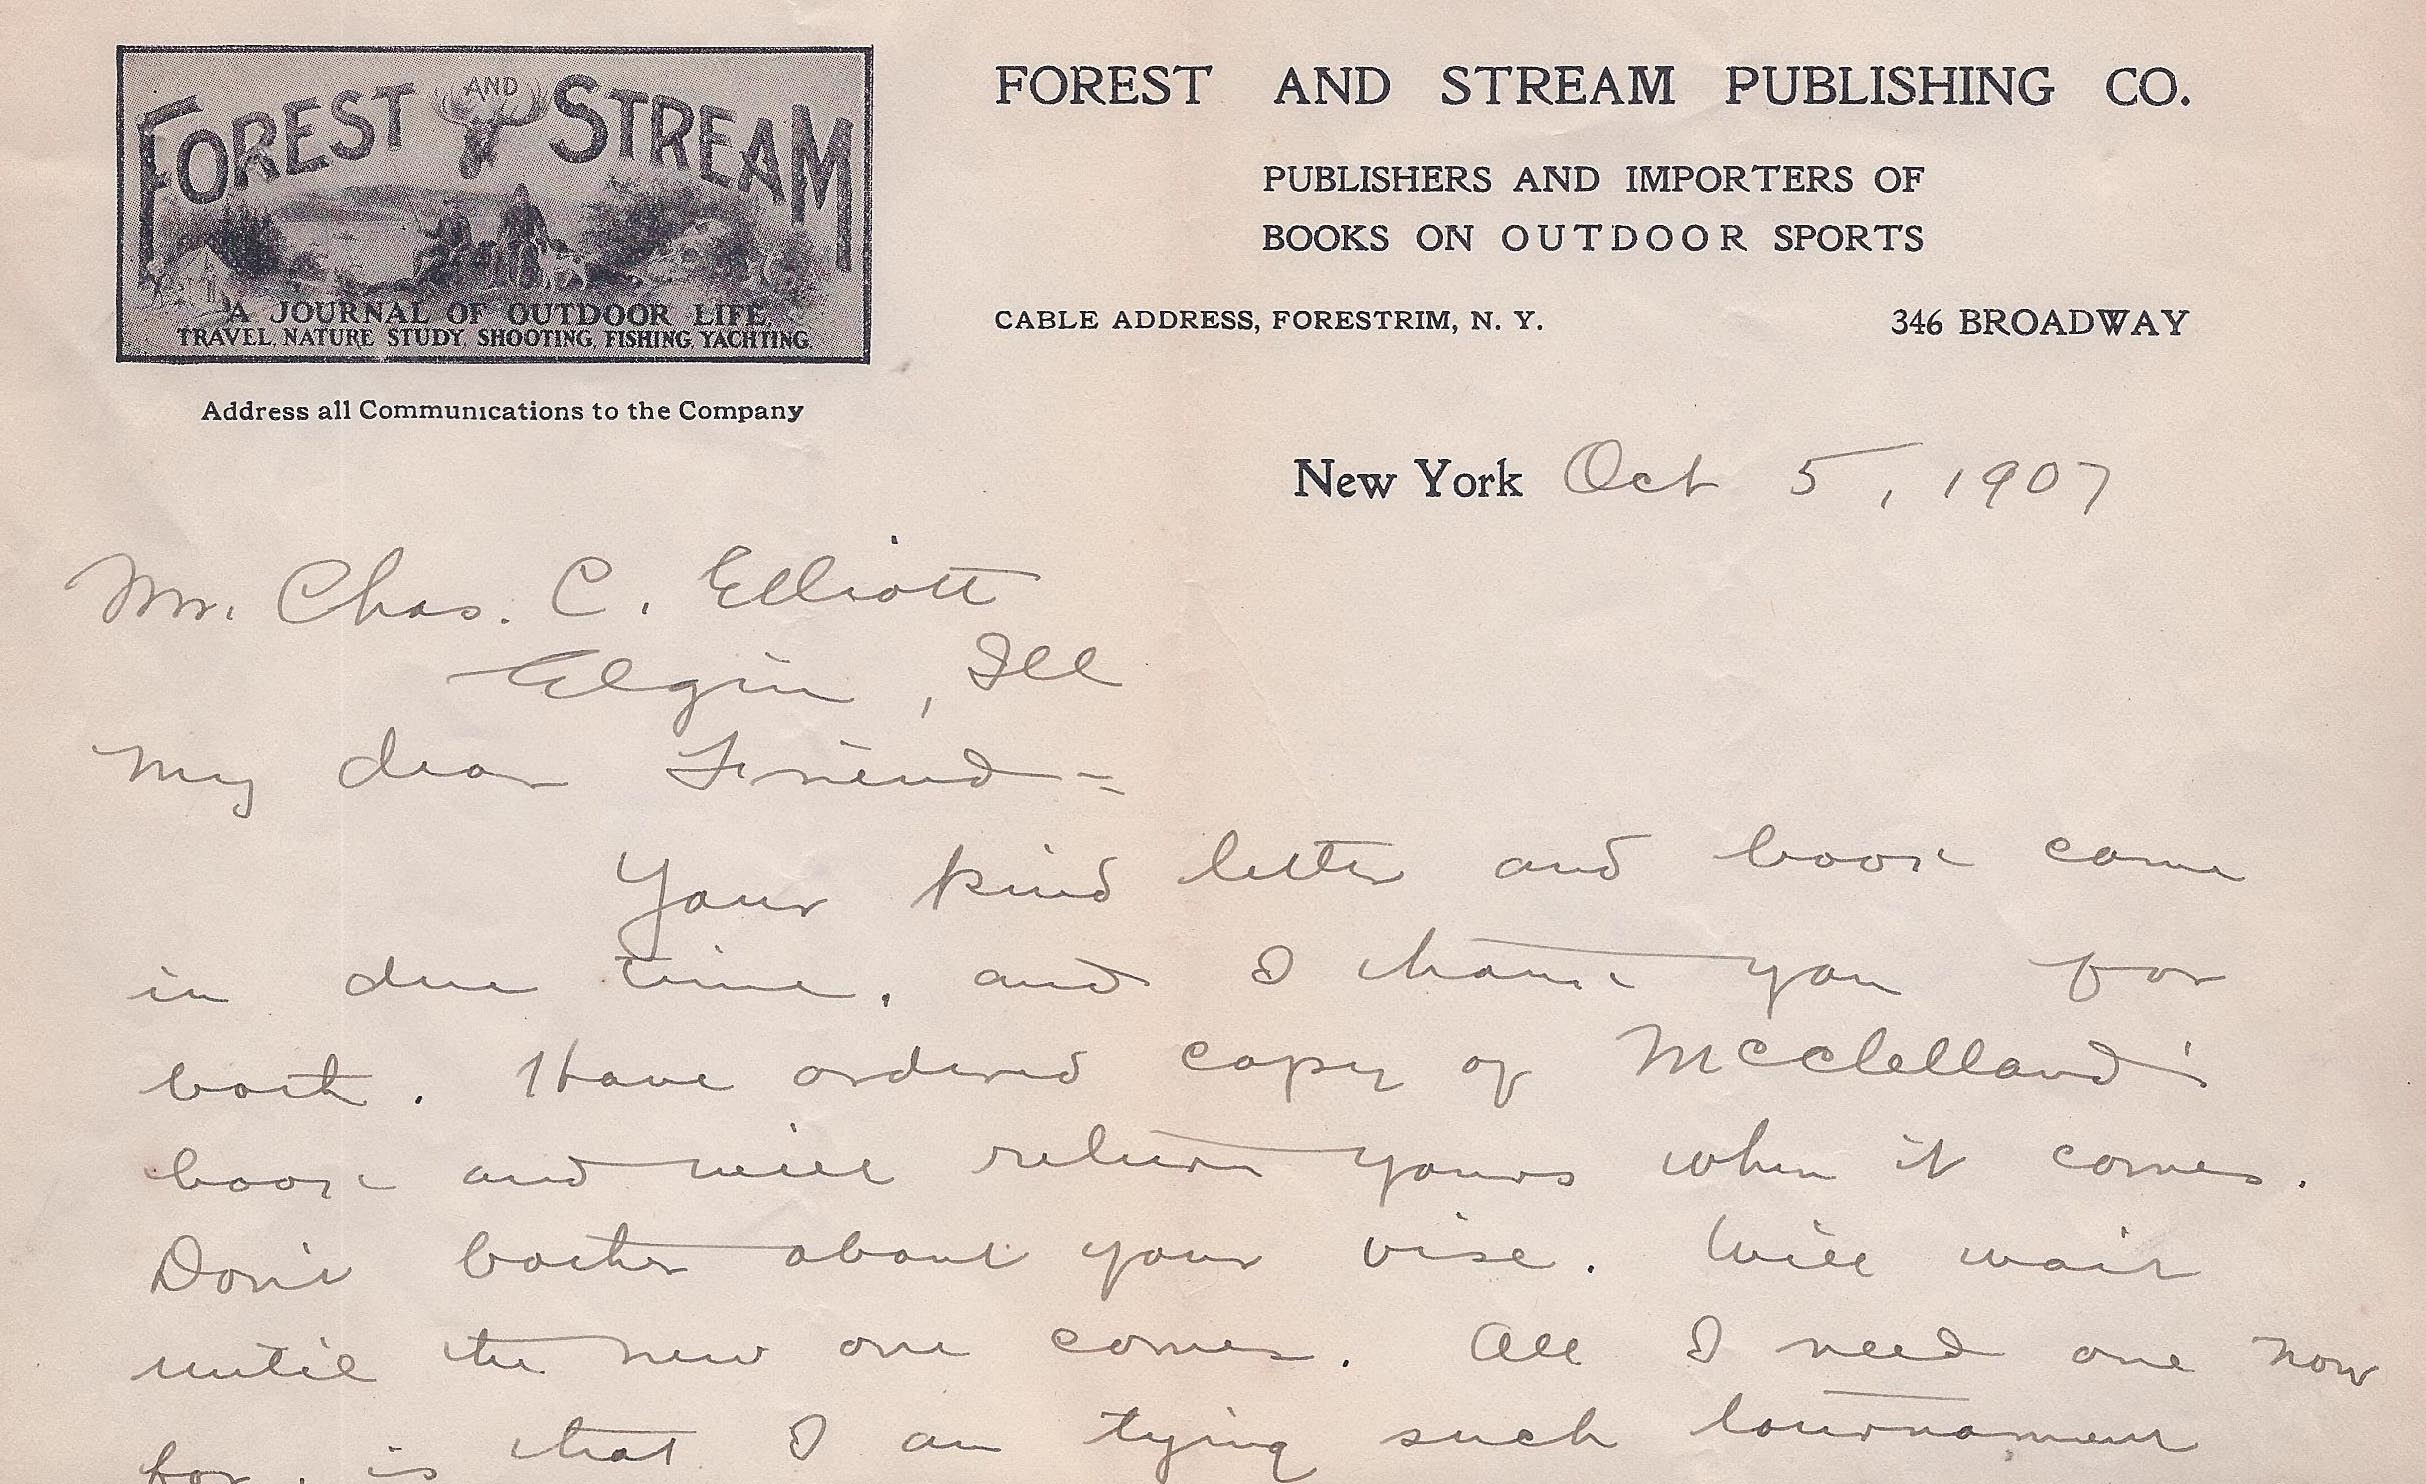 FOREST AND STREAM
A JOURNAL OF OUTDOOR LIFE,
TRAVEL, NATURE STUDY, SHOOTING, FISHING, YACHTING.
Address all Communications to the Company
FOREST AND STREAM PUBLISHING CO.
PUBLISHERS AND IMPORTERS OF
BOOKS ON OUTDOOR SPORTS
CABLE ADDRESS, FORESTRIM, N. Y.
346 BROADWAY
New York Oct 5, 1907
Mr. Chas. C. Elliott
Elgin, Ill
My dear Friend =
Your kind letter and book came
in due time, and I thank you for
both. Have ordered copy of McClelland's
book and will return yours when it comes.
Don't bother about your vise. Will wait
until the new one comes. All I need one now
for, is that I am tying such tournament